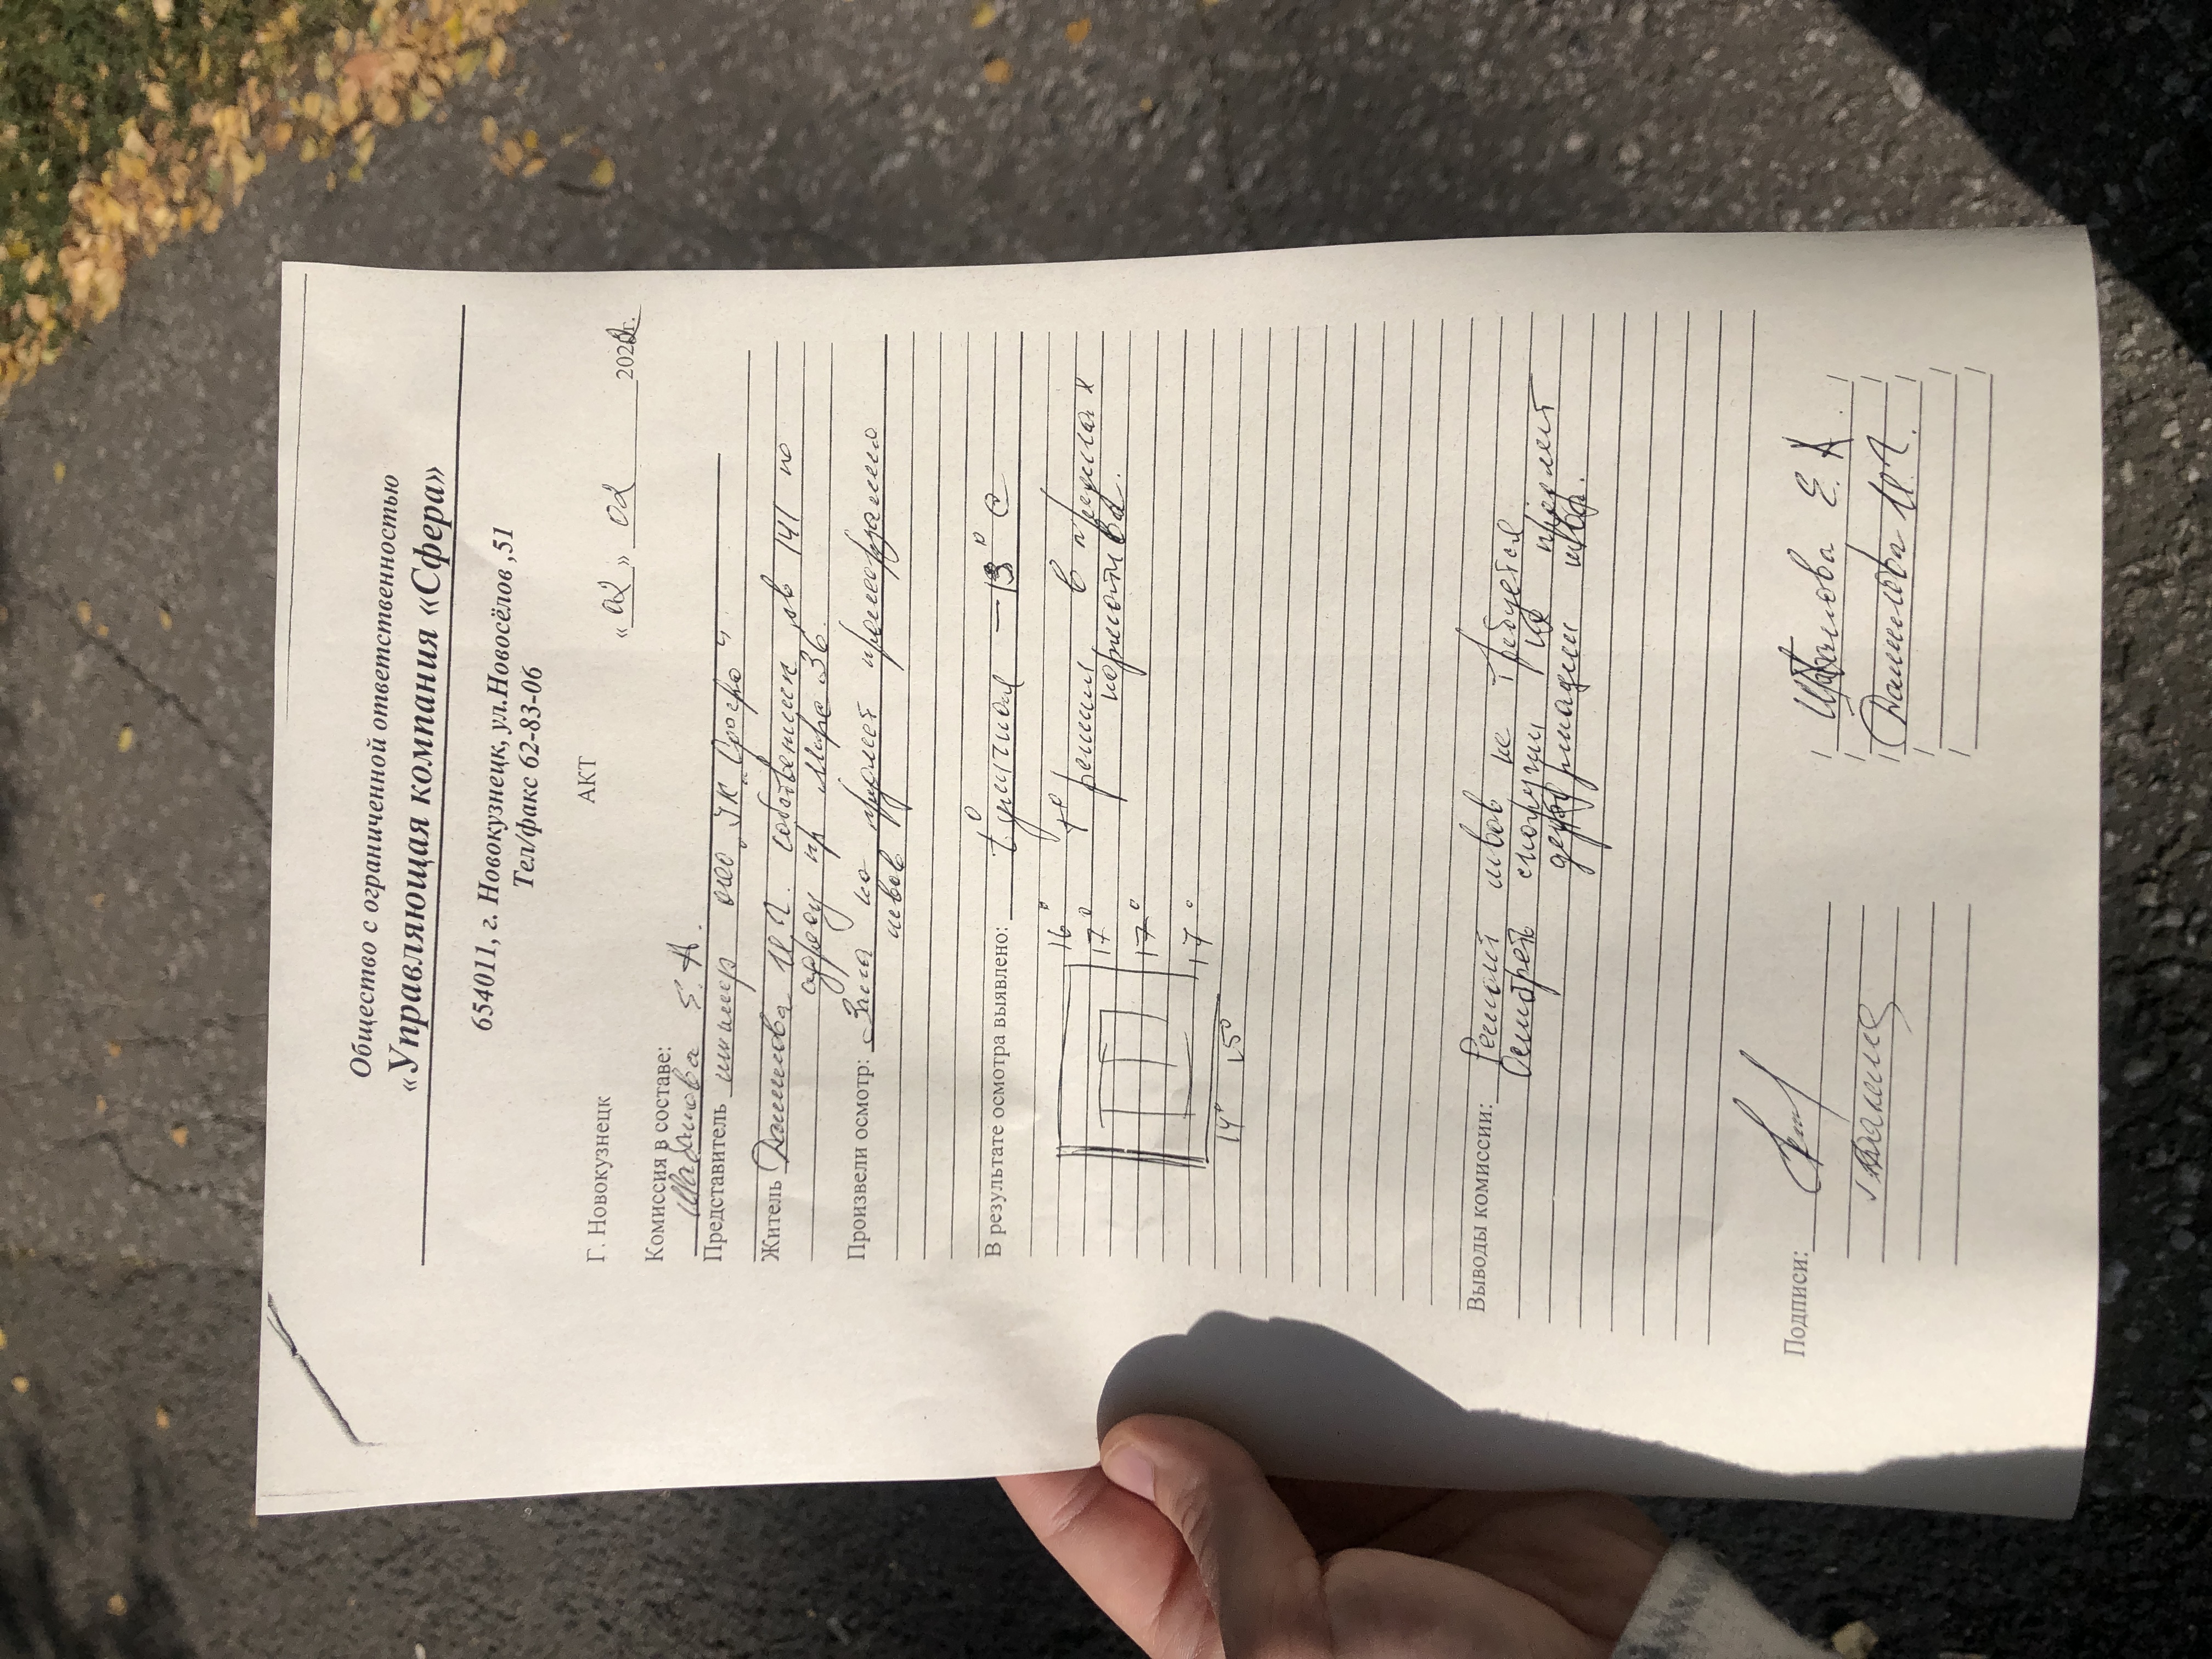 Общество с ограниченной ответственностью
«Управляющая компания «Сфера»
654011, г. Новокузнецк, ул.Новосёлов ,51
Тел/факс 62-83-06
АКТ
Г. Новокузнецк «02» 02 2022г.
Комиссия в составе:
Е. А.
Представитель инженер ООО "УК Сфера"
Житель Данилова И.А. собственник кв 141 по
адресу пр Мира 36.
Произвели осмотр:
швов
В результате осмотра выявлено: t° уличная -13° С
16° t° режим в пределах
17° норматива.
17°
17°
14° 15°
Выводы комиссии: Ремонт швов не требуется.
не
деформации швов.
Подписи:
Е. А.
Данилова И.А.